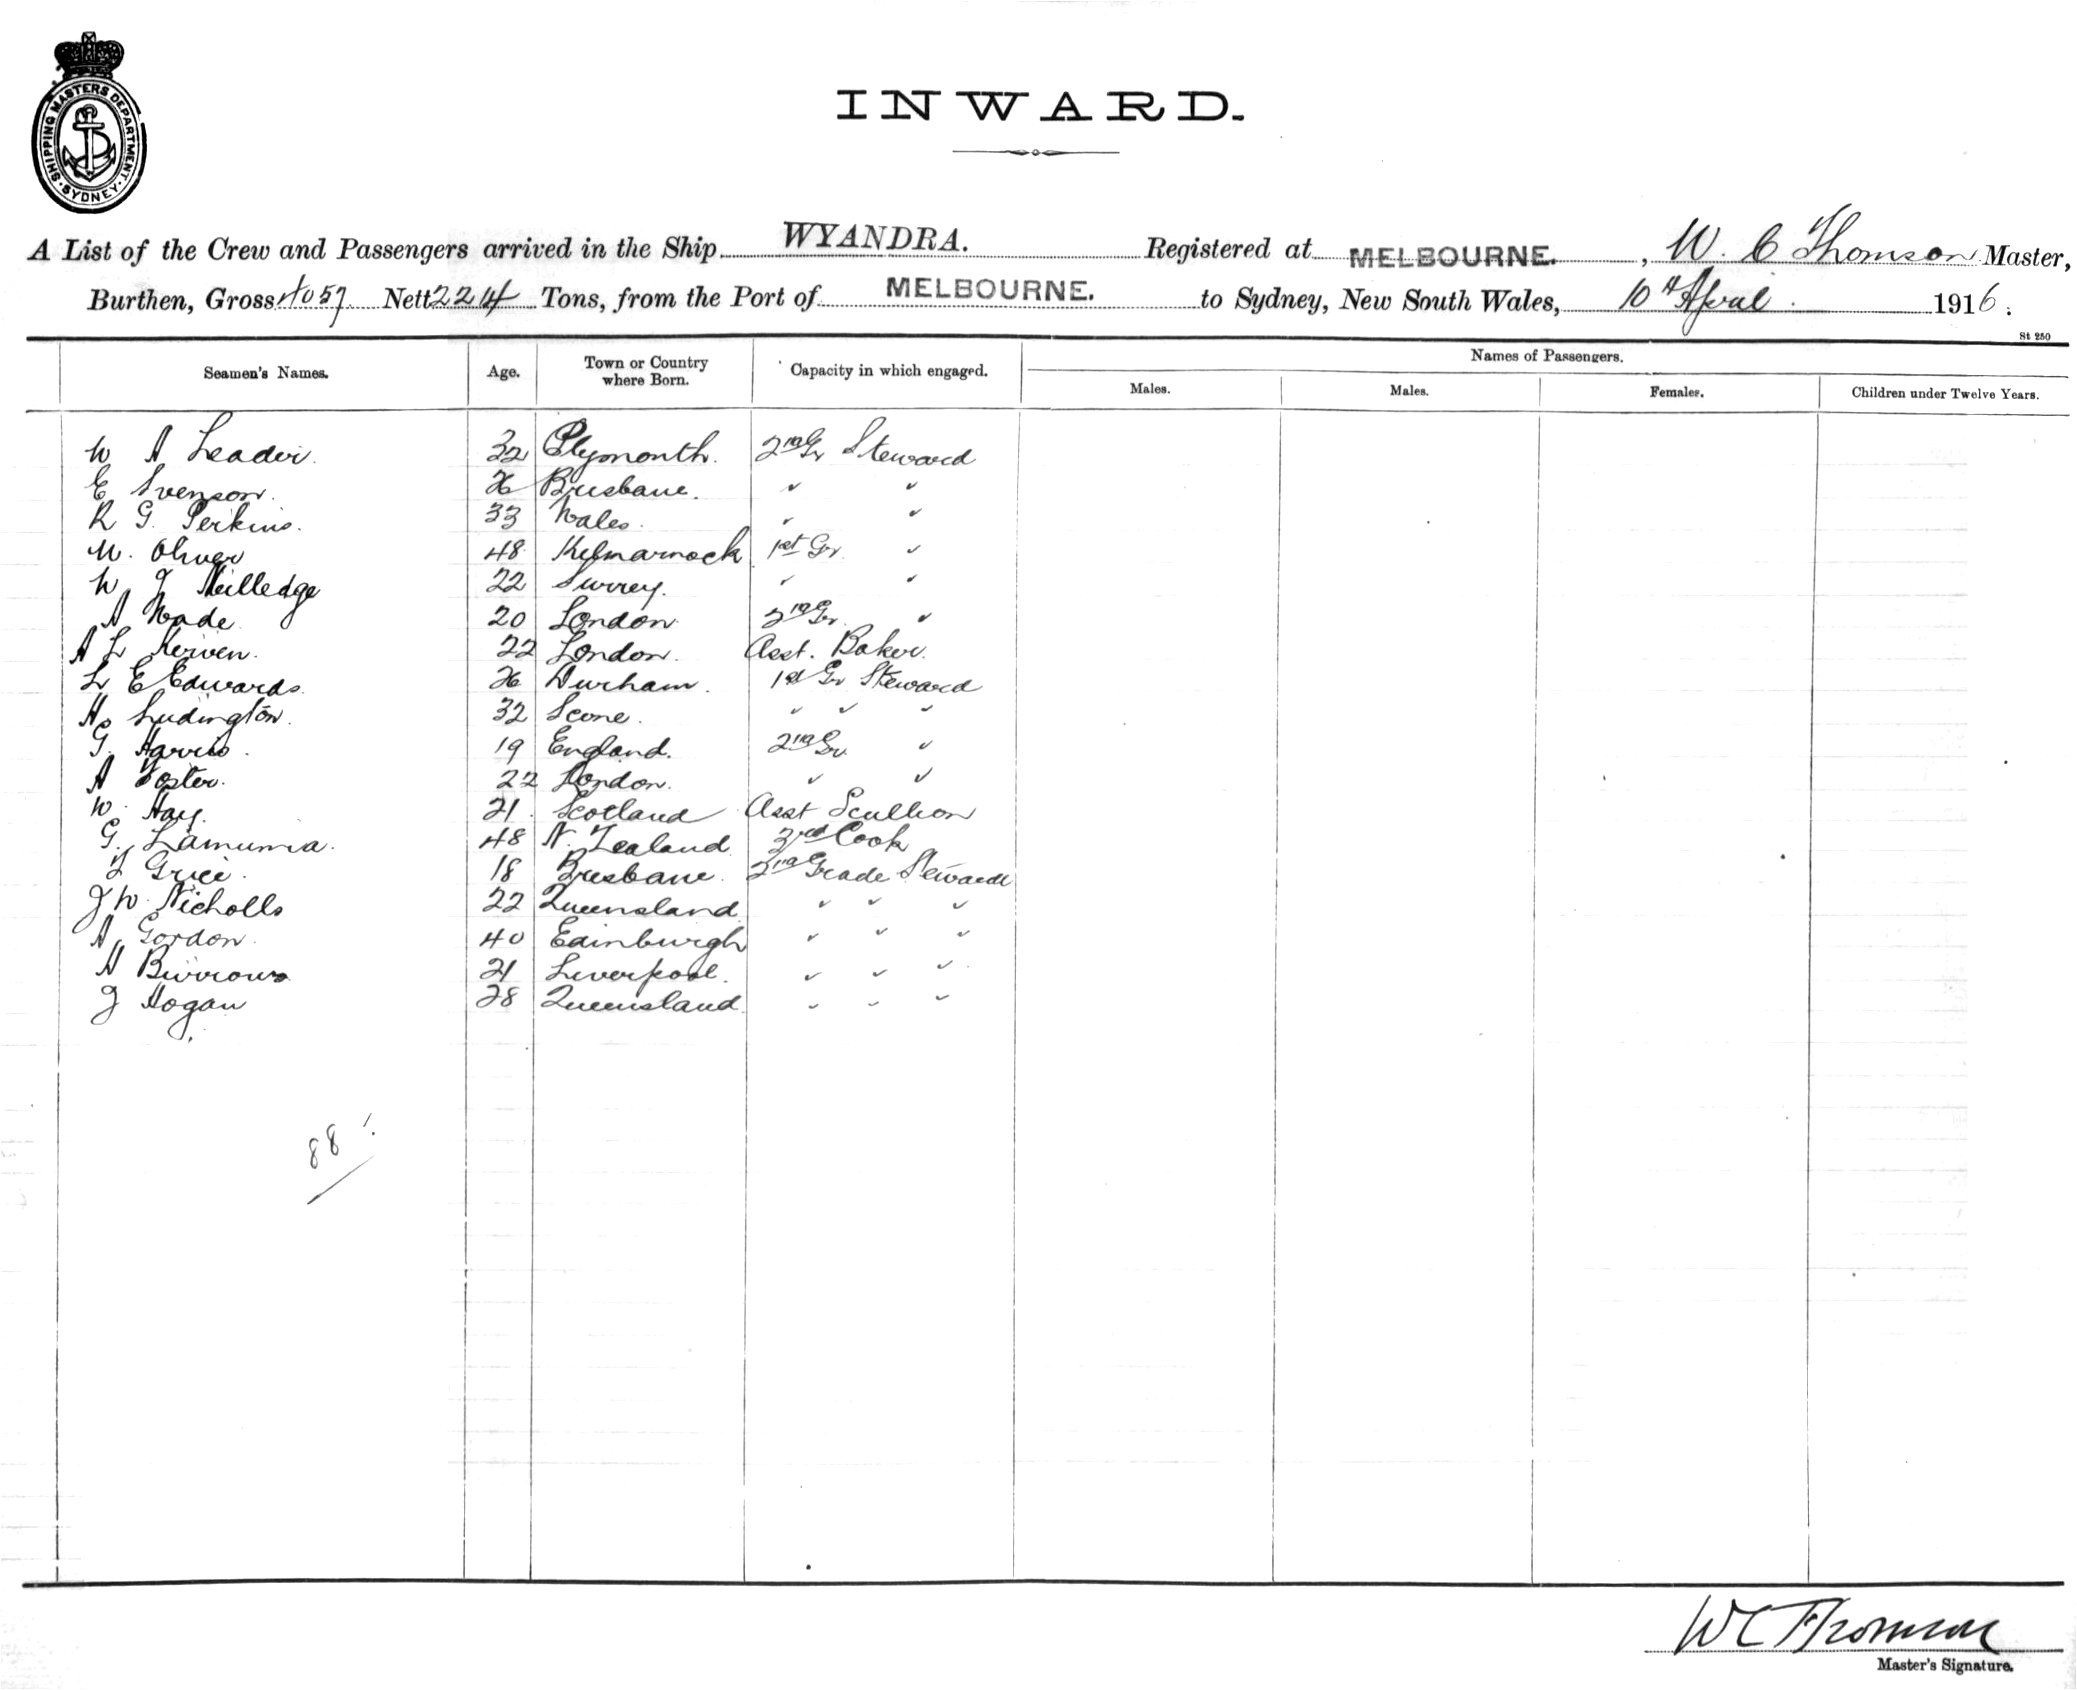 SHIPPING MASTERS DEPARTMENT. SYDNEY
INWARD.
A List of the Crew and Passengers arrived in the Ship WYANDRA. Registered at MELBOURNE. , W. C Thomson Master,
Burthen, Gross 4057 Nett 2214 Tons, from the Port of MELBOURNE. to Sydney, New South Wales, 10th April. 1916.
St 250
Seamen's Names. Age. Town or Country where Born. Capacity in which engaged. Names of Passengers.
Males. Males. Females. Children under Twelve Years.
W A Leader. 32 Plymouth. 2nd Gr Steward
E Svenson. 26 Brisbane. " "
R G. Perkins. 33 Wales. " "
M. Oliver 48 Kilmarnock 1st Gr. "
W. 22 Surrey. " "
A Wade 20 London 2nd Gr. "
A L Kerven. 22 London. Asst. Baker.
L E Edwards. 26 Durham. 1st Gr Steward
H. Ludington. 32 Scone. " " "
G. Harris. 19 England. 2nd Gr. "
A Foster. 22 London. " "
W. Hay. 21. Scotland Asst Scullion
G. 48 N. Zealand 3rd Cook
18 Brisbane. 2nd Grade Steward
J W. Nicholls 22 Queensland. " " "
A. Gordon. 40 Edinburgh " " "
A Burrows 21 Liverpool. " " "
J Hogan 28 Queensland. " " "
88
W C Thomson
Master's Signature.